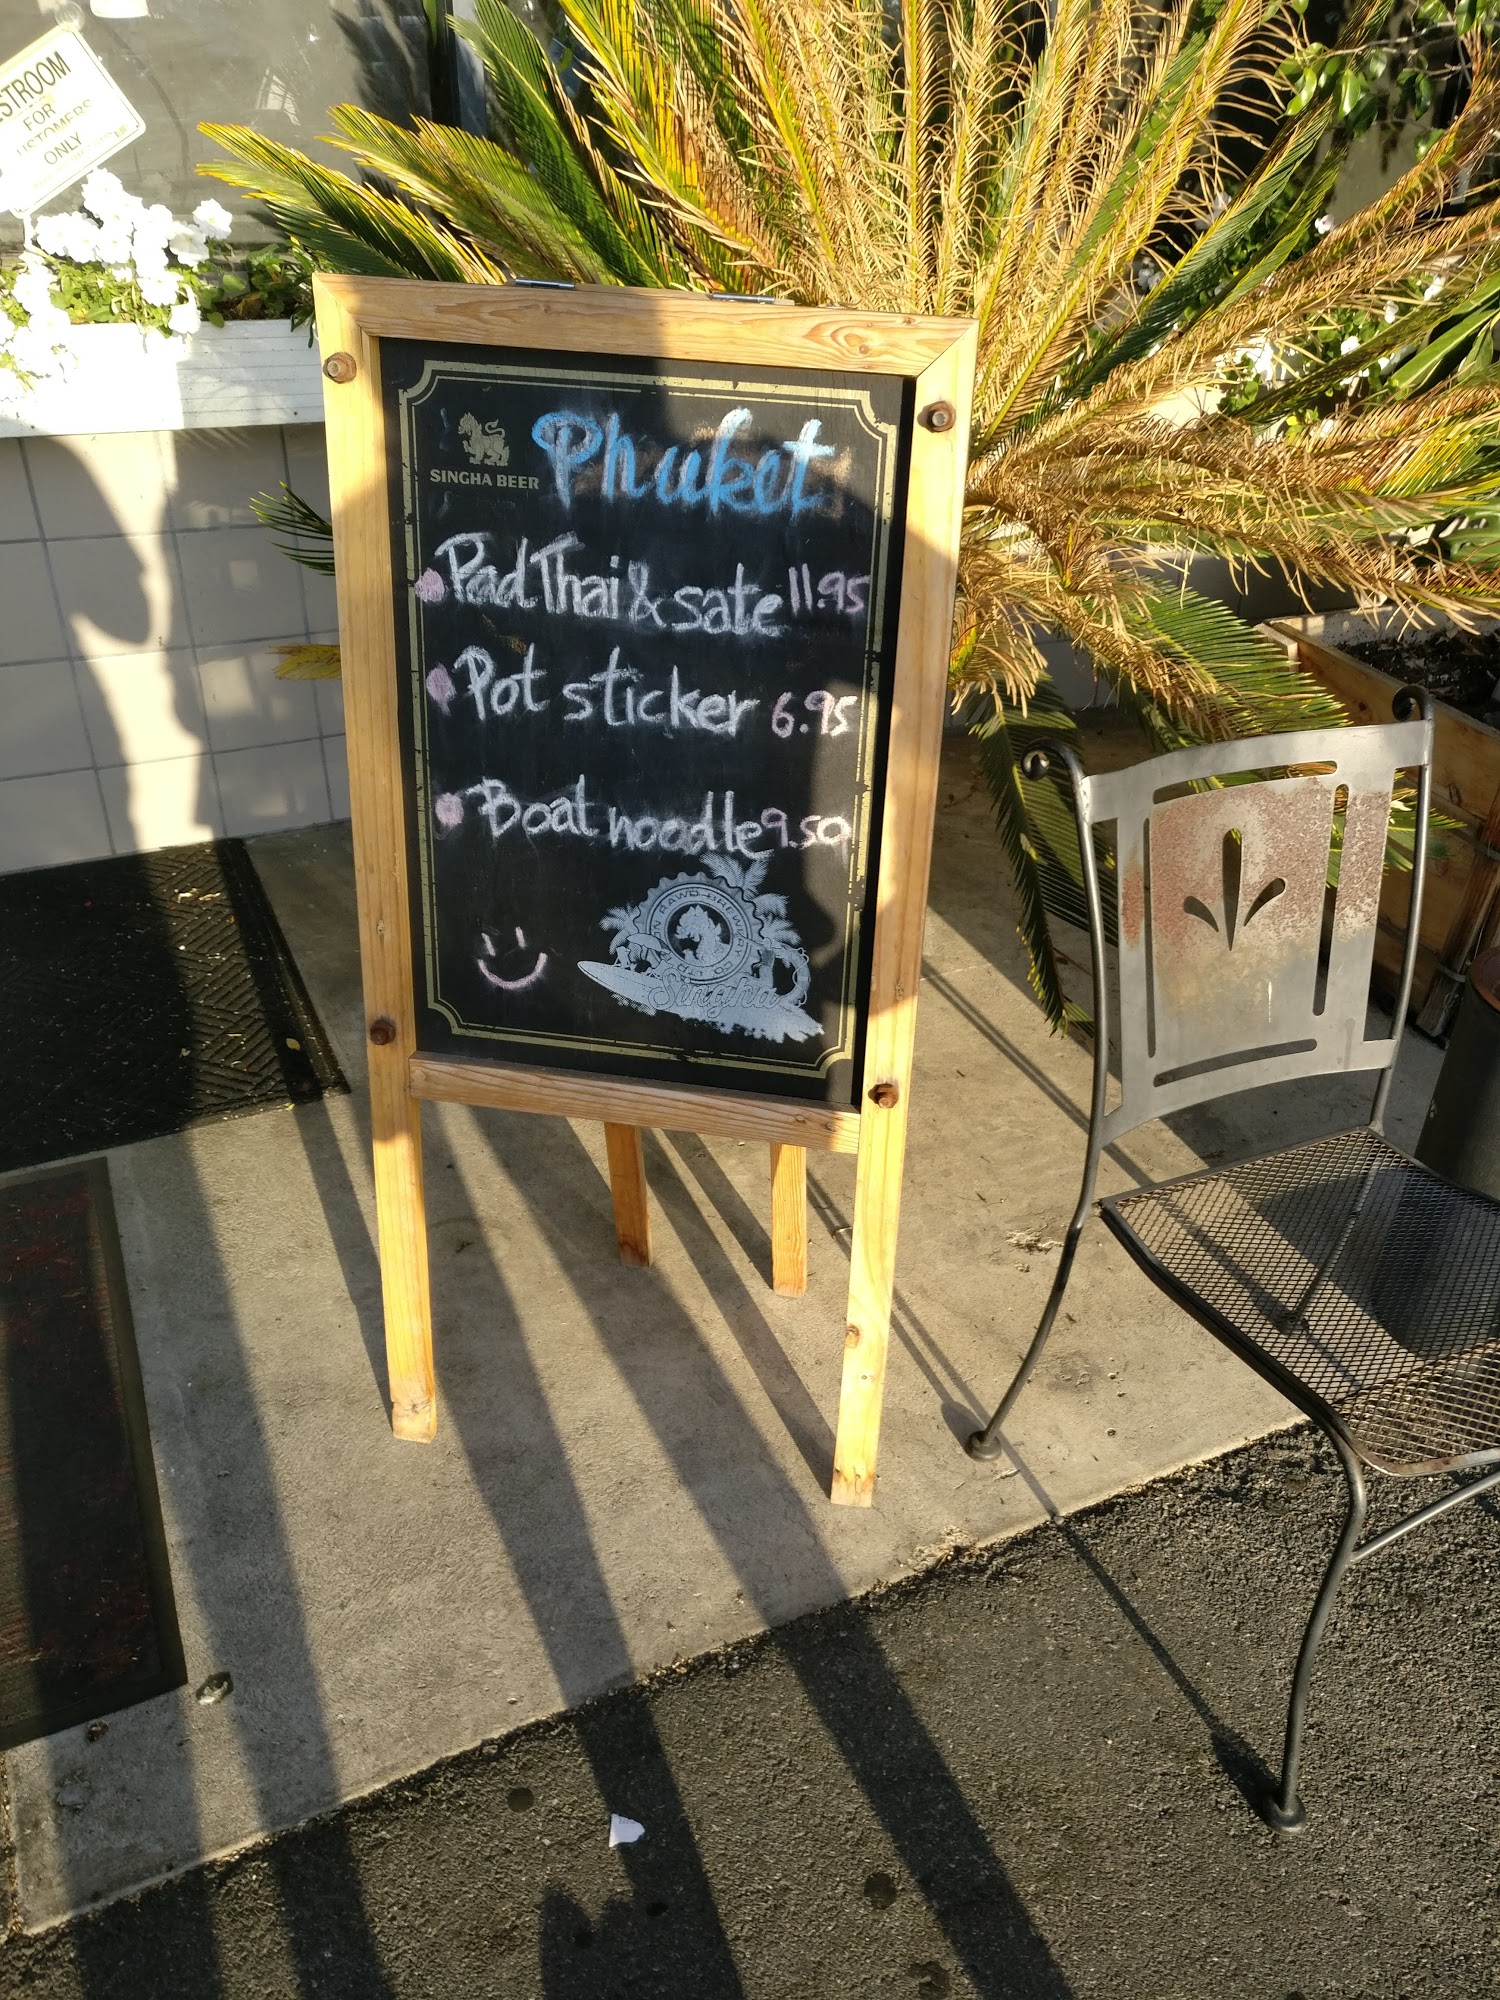 STROOM
FOR
USTOMERS
ONLY
SINGHA BEER
Phuket
Pad Thai & sate 11.95
Pot sticker 6.95
Boat noodle 9.50
RAWD BREWERY CO
Singha